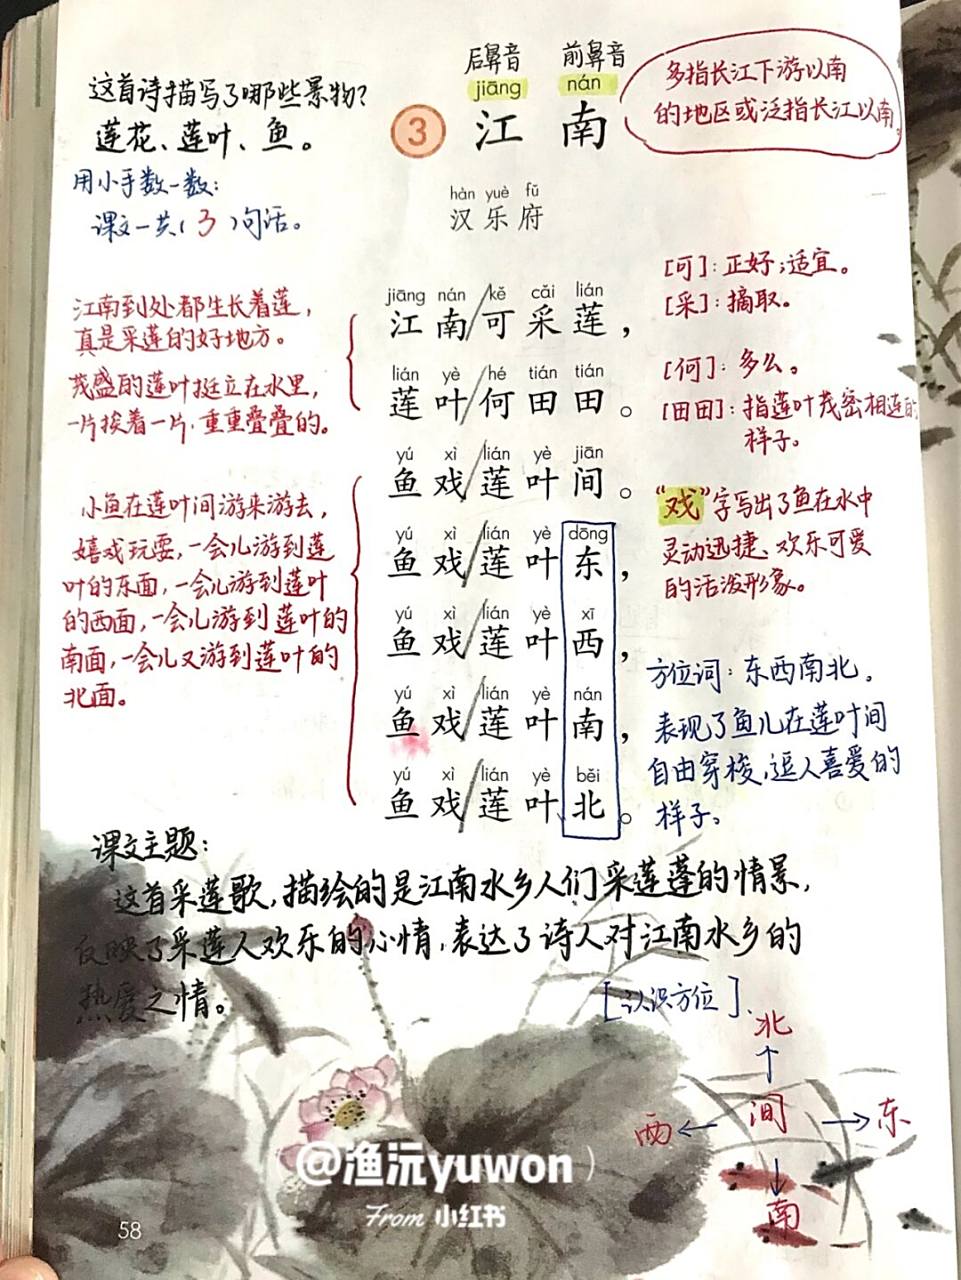 这首诗描写了哪些景物？
莲花、莲叶、鱼。
用小手数一数：
课文一共（3）句话。
后鼻音 前鼻音
jiāng nán
3 江南
多指长江下游以南
的地区或泛指长江以南。
hàn yuè fǔ
汉乐府
江南到处都生长着莲，
真是采莲的好地方。
茂盛的莲叶挺立在水里，
一片挨着一片，重重叠叠的。
jiāng nán kě cǎi lián
江南/可采莲，
lián yè hé tián tián
莲叶/何田田。
yú xì lián yè jiān
鱼戏/莲叶间。
yú xì lián yè dōng
鱼戏/莲叶东，
yú xì lián yè xī
鱼戏/莲叶西，
yú xì lián yè nán
鱼戏/莲叶南，
yú xì lián yè běi
鱼戏/莲叶北。
[可]：正好；适宜。
[采]：摘取。
[何]：多么。
[田田]：指莲叶茂密相连的
样子。
小鱼在莲叶间游来游去，
嬉戏玩耍，一会儿游到莲
叶的东面，一会儿游到莲叶
的西面，一会儿游到莲叶的
南面，一会儿又游到莲叶的
北面。
“戏”字写出了鱼在水中
灵动迅捷、欢乐可爱
的活泼形象。
方位词：东西南北。
表现了鱼儿在莲叶间
自由穿梭，逗人喜爱的
样子。
课文主题：
这首采莲歌，描绘的是江南水乡人们采莲蓬的情景，
反映了采莲人欢乐的心情，表达了诗人对江南水乡的
热爱之情。
[认识方位]
北
西 间 东
南
@渔沅yuwon
From 小红书
58